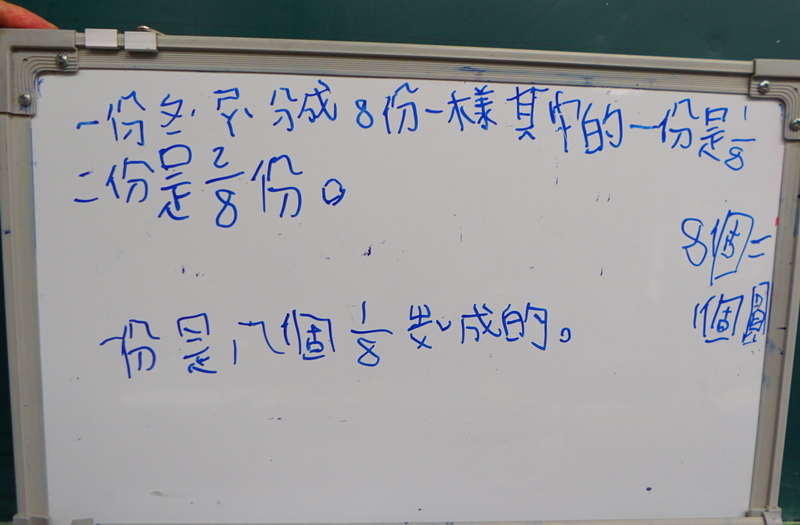 一份 分成8份一樣其中的一份是1/8
二份是2/8份。
8個=
1個圓
一份是八個1/8 成的。